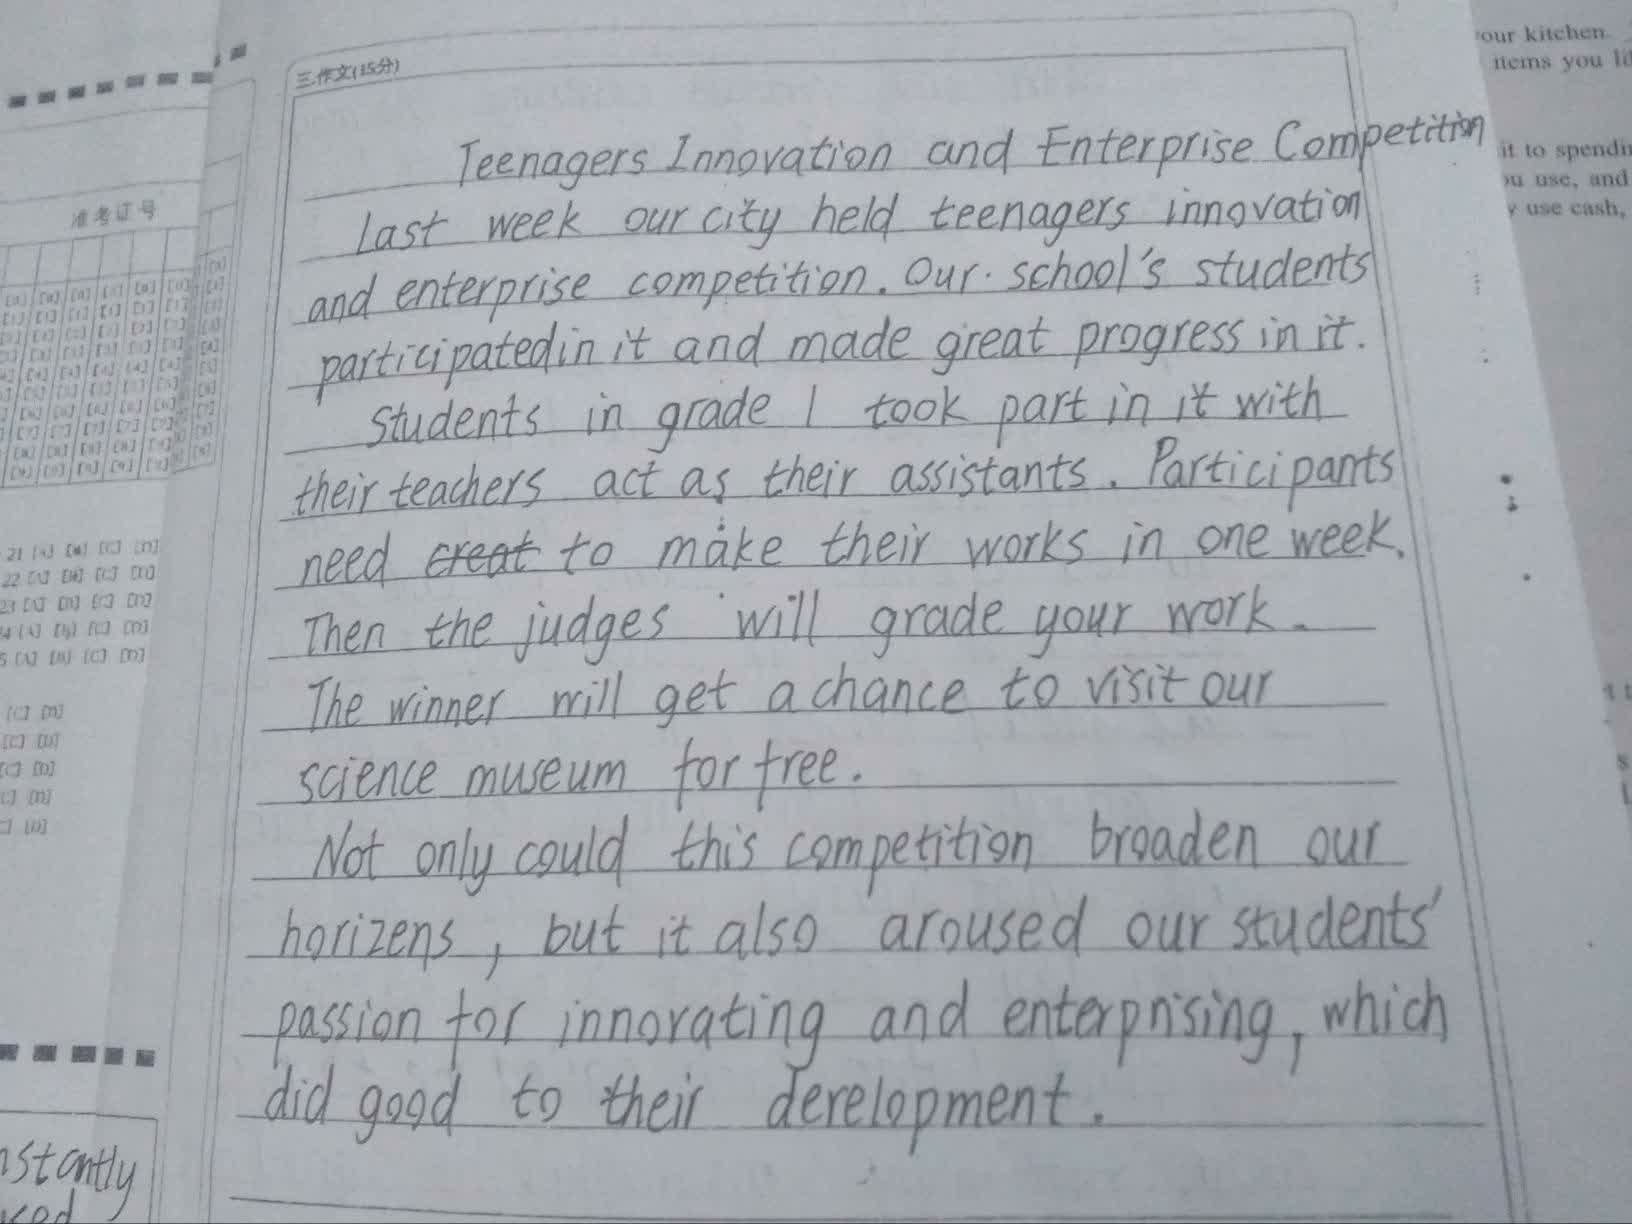 三.作文(15分)
Teenagers Innovation and Enterprise Competition
Last week our city held teenagers innovation
and enterprise competition. Our school's students
participated in it and made great progress in it.
Students in grade 1 took part in it with
their teachers act as their assistants. Participants
need creat to make their works in one week.
Then the judges will grade your work.
The winner will get a chance to visit our
science museum for free.
Not only could this competition broaden our
horizens, but it also aroused our students'
passion for innovating and enterprising, which
did good to their development.
准考证号
21 [A] [B] [C] [D]
22 [A] [B] [C] [D]
23 [A] [B] [C] [D]
4 [A] [B] [C] [D]
5 [A] [B] [C] [D]
[C] [D]
[C] [D]
[C] [D]
[D]
[D]
our kitchen.
items you
it to
ou use, and
use cash,